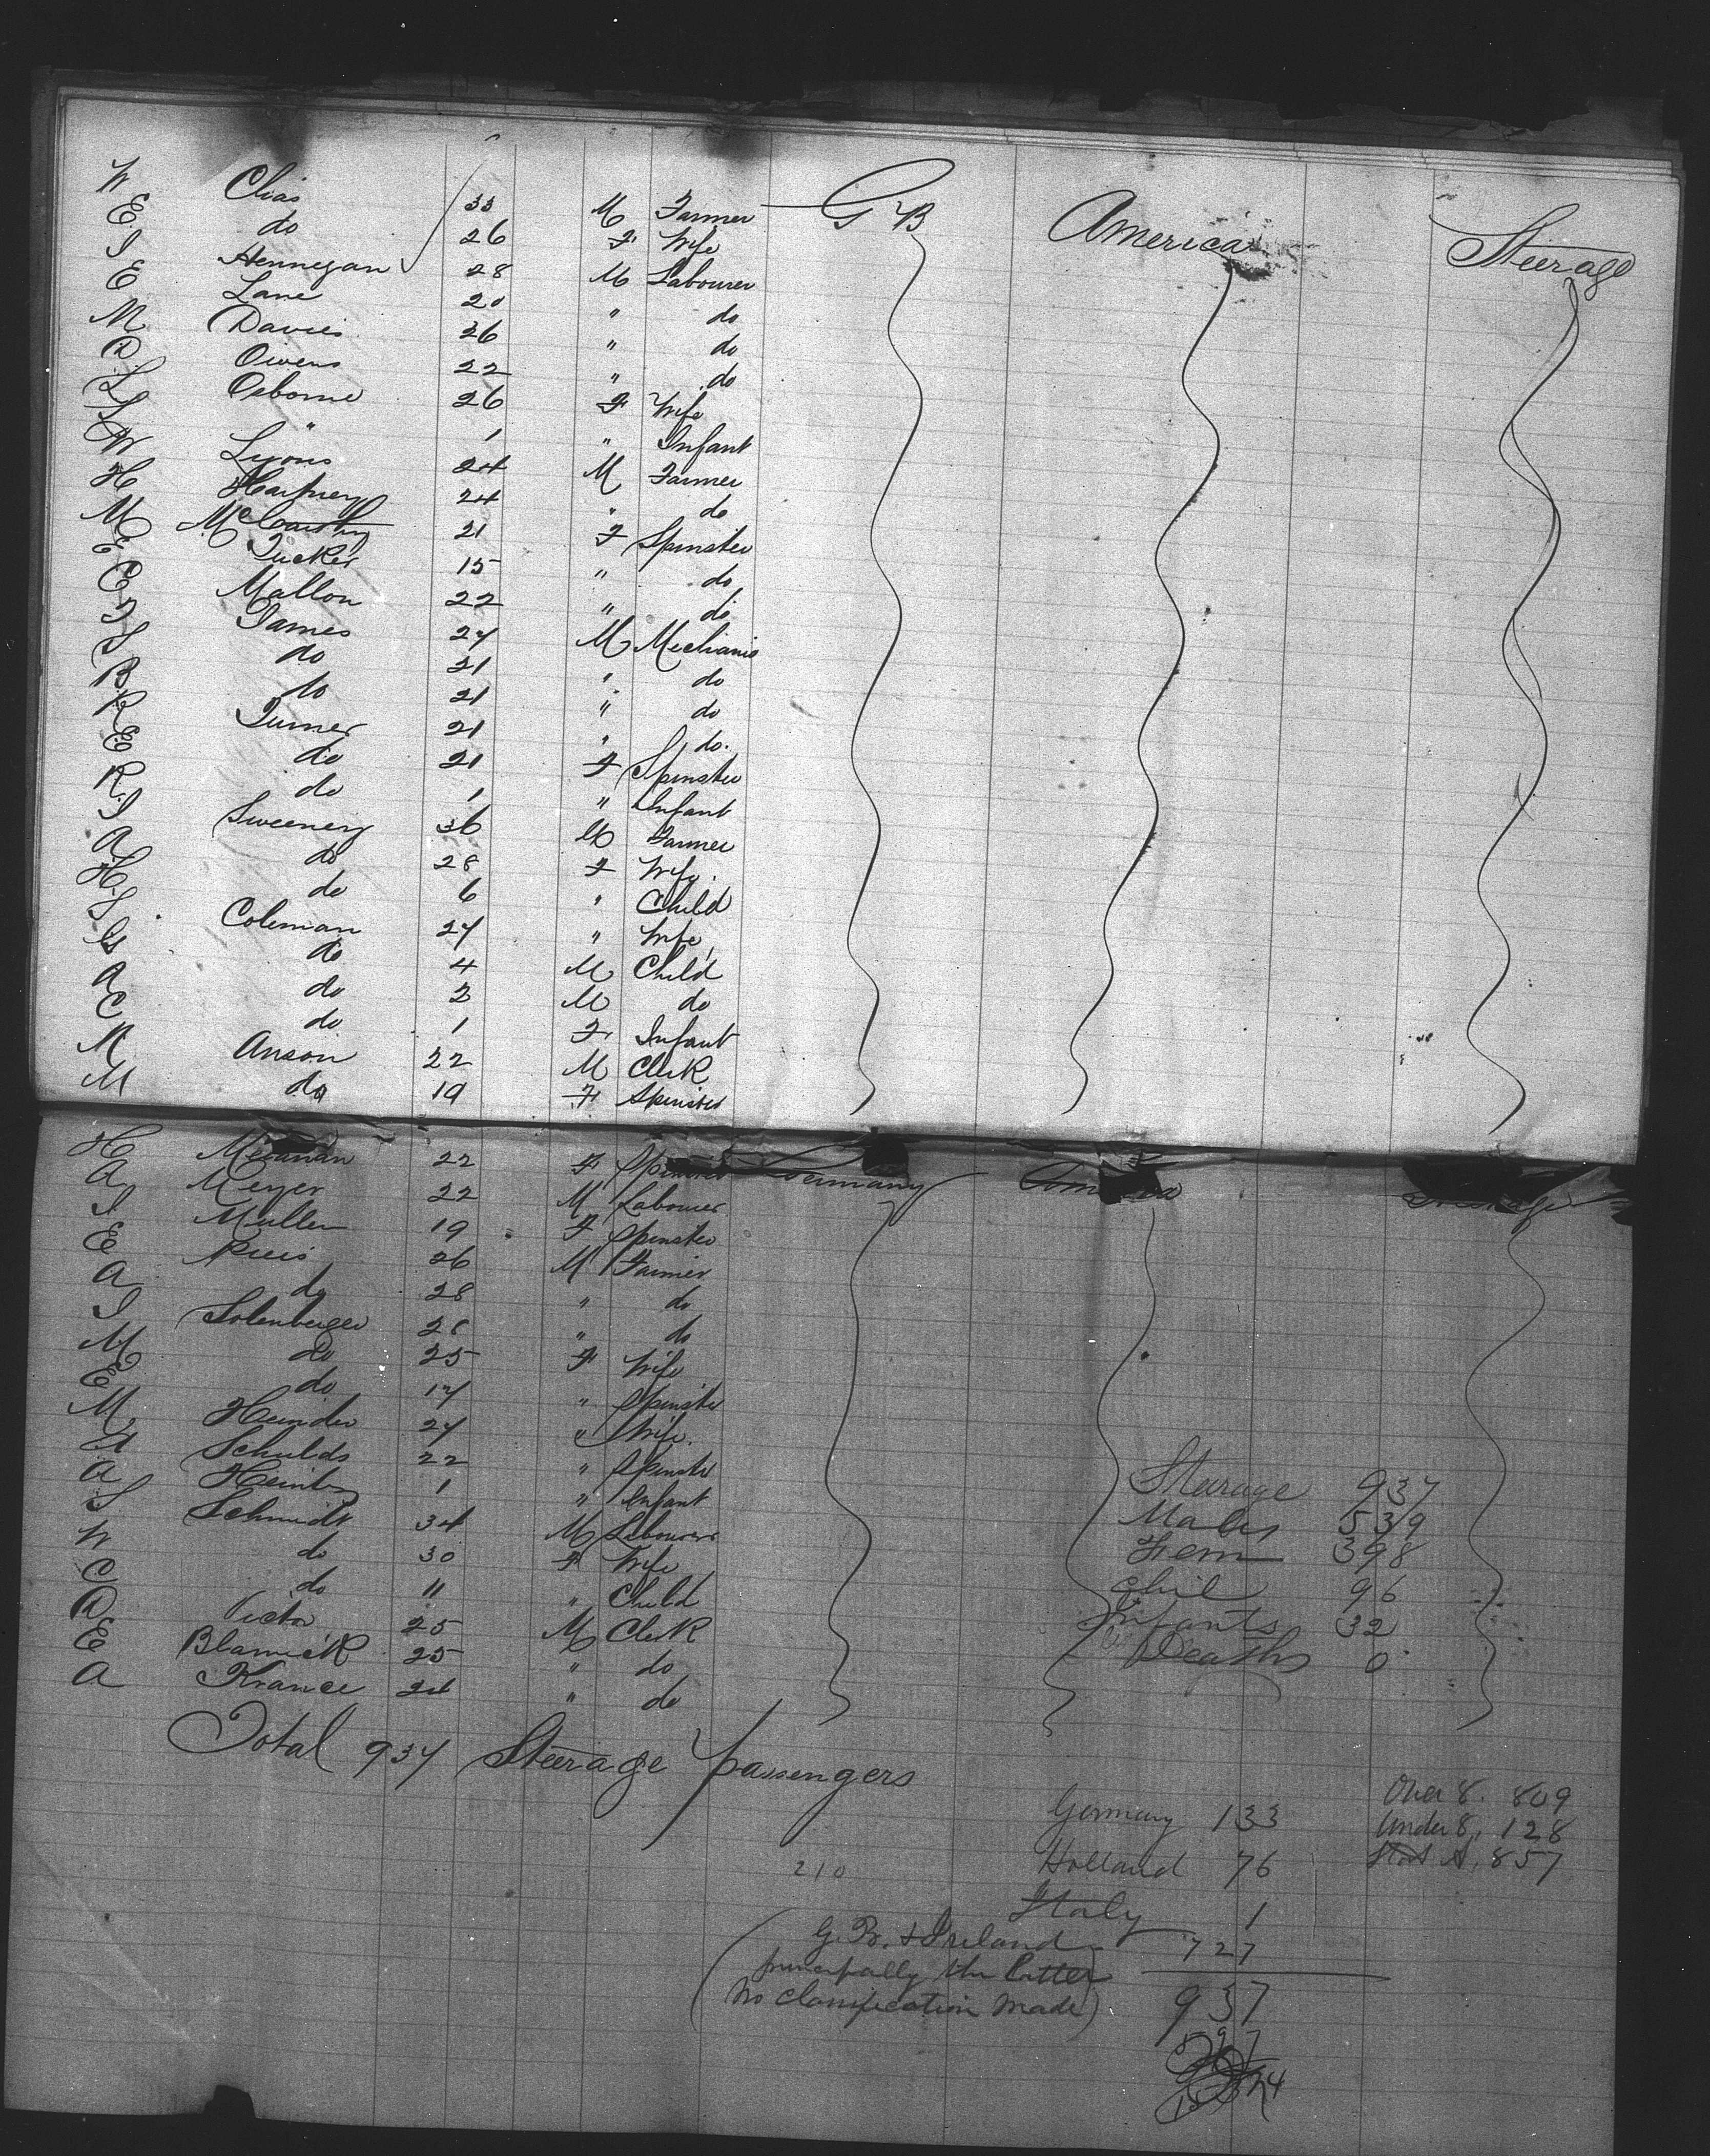 W Elias 33 M Farmer G B America Steerage
E do 26 F Wife
J Hennegan 28 M Labourer
E Lane 20 " do
M Davies 36 " do
R Owens 22 " do
L Osborne 26 F Wife
S " 1 " Infant
W Lyons 24 M Farmer
H Hartney 24 " do
M McCarthy 21 F Spinster
E Tucker 15 " do
C Mallon 22 " do
J James 27 M Mechanic
S do 21 " do
B do 21 " do
R Turner 21 " do.
E do 21 F Spinster
R do 1 " Infant
J Sweeney 36 M Farmer
A do 28 F Wife.
H do 6 " Child
S Coleman 27 " Wife
G do 4 M Child
A do 2 M do
C do 1 F Infant
M Anson 22 M Clerk
M do 19 F Spinster
H 22 F Spinster Germany America Steerage
A Meyer 22 M Labourer
J Muller 19 F Spinster
E 26 M Farmer
A do 28 " do
J Solenberger 28 " do
M do 25 F Wife
E do 17 " Spinster
M 27 " Wife.
A Schulds 22 " Spinster
A 1 " Infant
S Schmidt 34 M Labourer
W do 30 F Wife
C do 11 " Child
R Victor 25 M Clerk
E 25 " do
A Krance 24 " do
Steerage 937
Males 539
Fem 398
Chil 96
Infants 32
Deaths 0
Total 937 Steerage passengers
Over 8. 809
Under 8. 128
857
Germany 133
Holland 76
210
Italy 1
G. B. & Ireland 727
(principally the latter
No classification made)
937